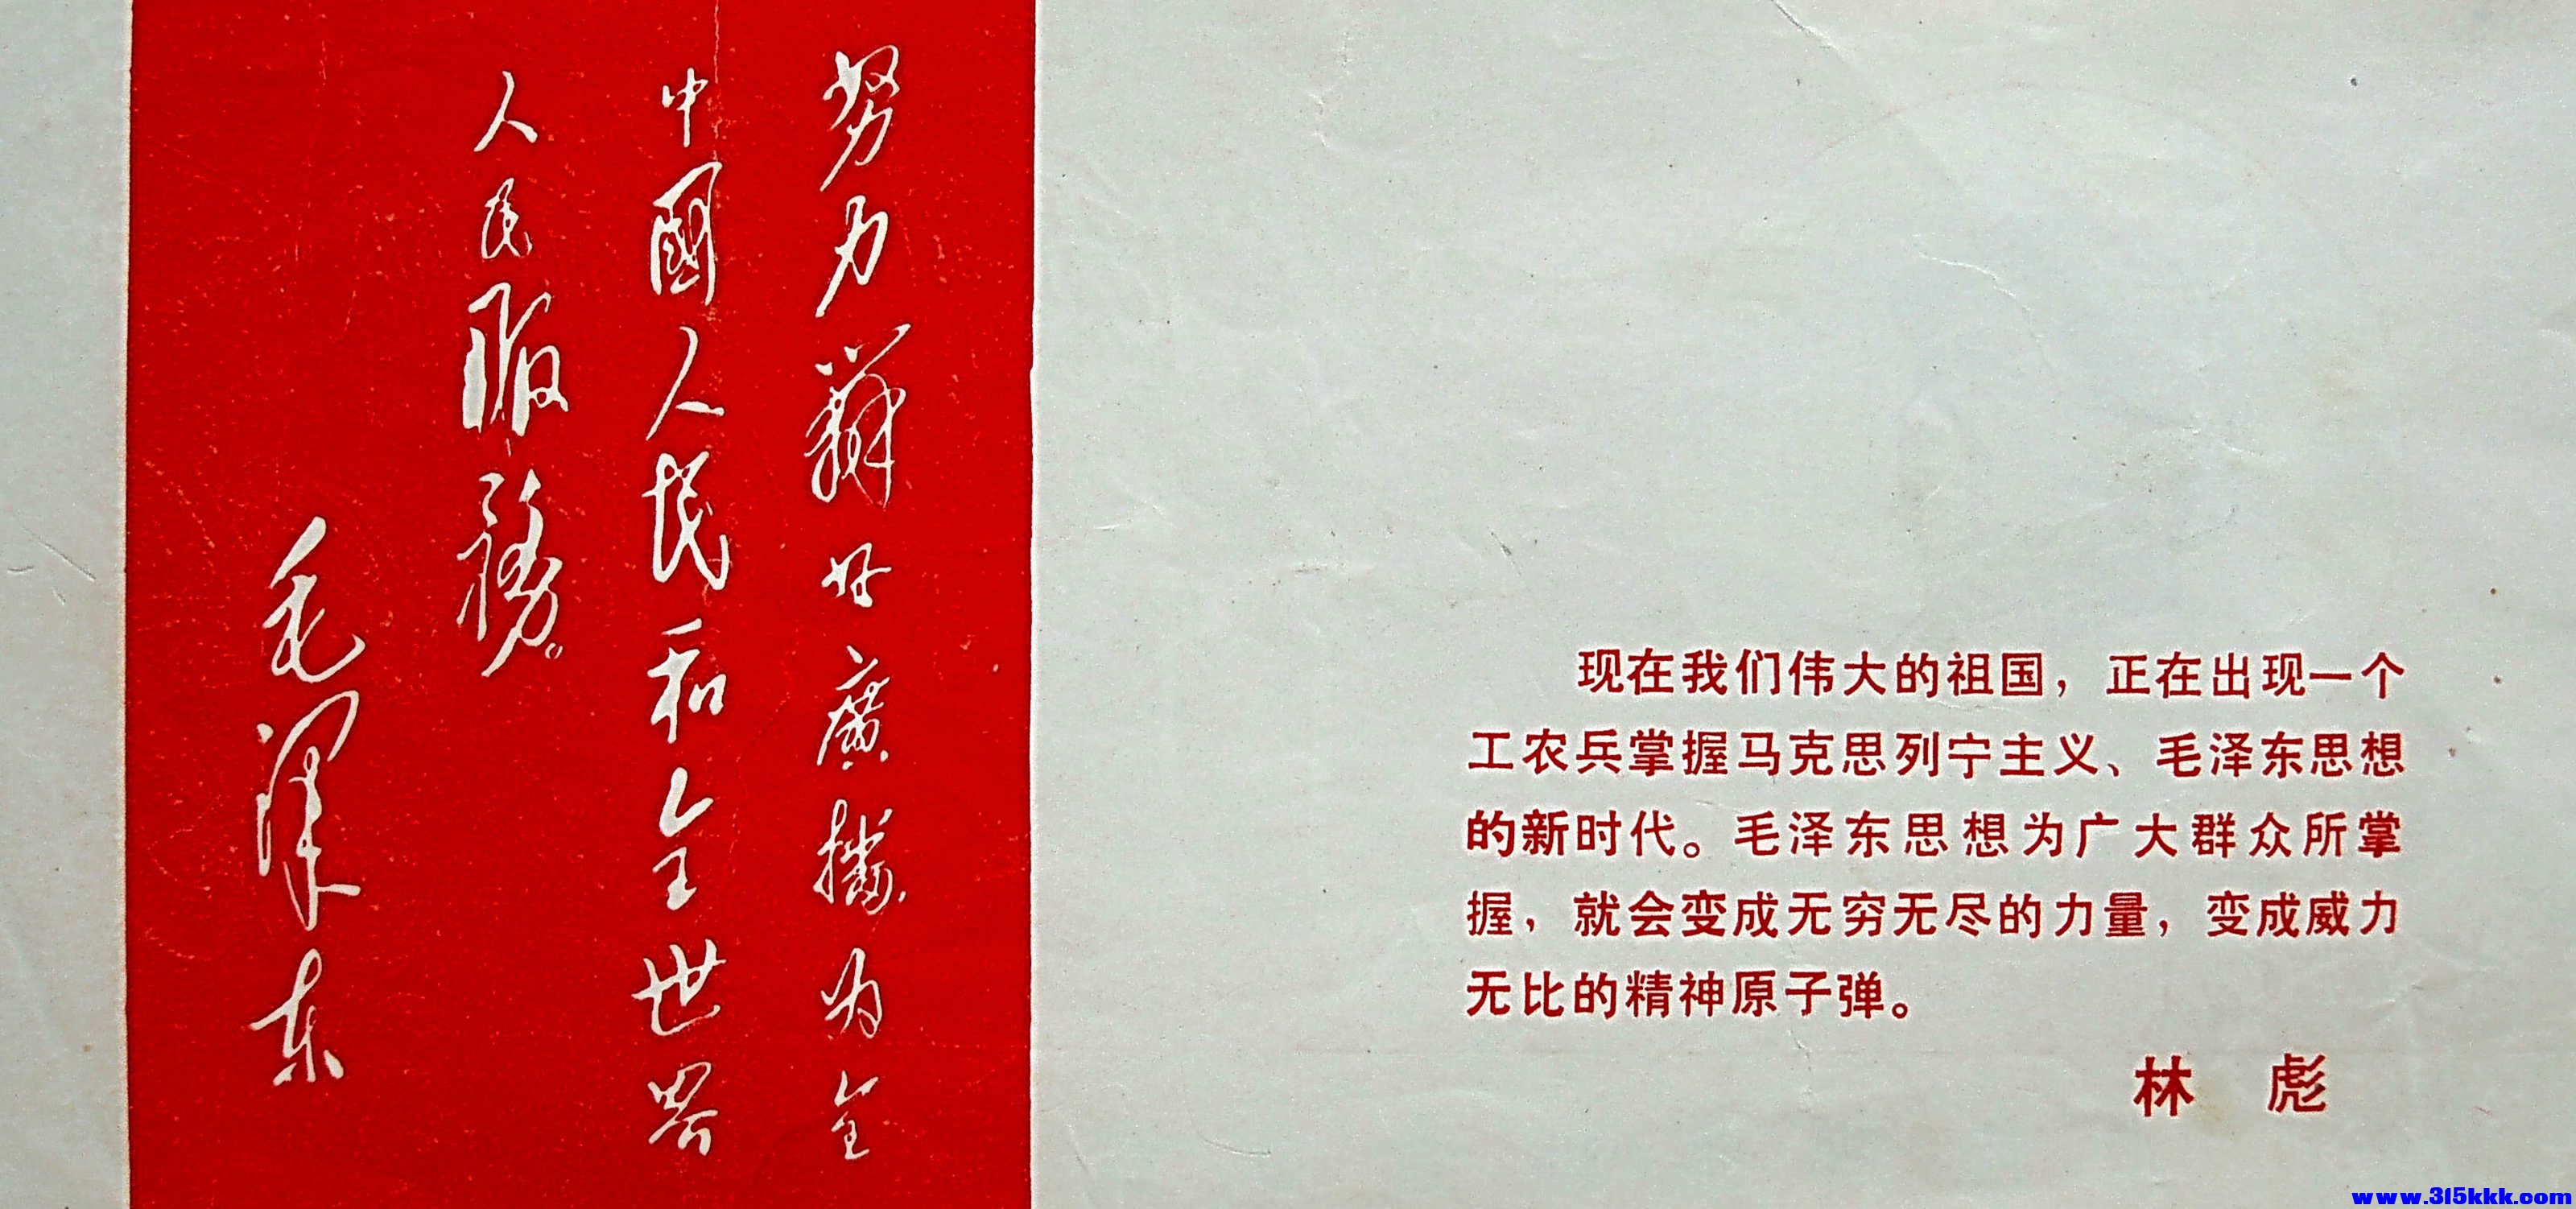 努力辦好廣播为全
中國人民和全世界
人民服務。
毛澤东
现在我们伟大的祖国，正在出现一个
工农兵掌握马克思列宁主义、毛泽东思想
的新时代。毛泽东思想为广大群众所掌
握，就会变成无穷无尽的力量，变成威力
无比的精神原子弹。
林 彪
www.315kkk.com